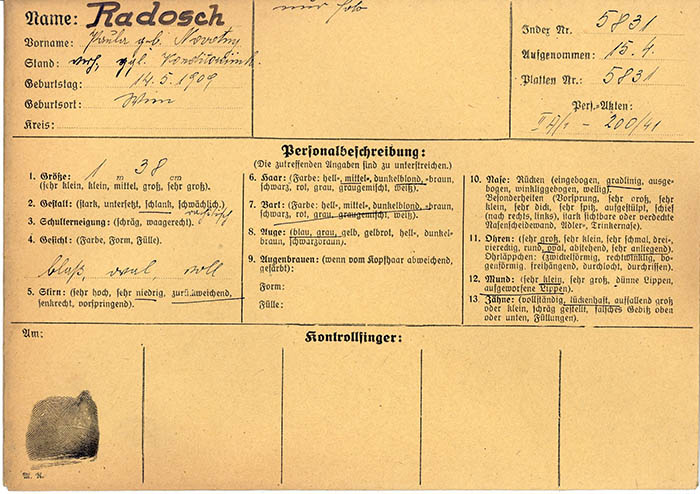 Name: Radosch
Vorname: Paula geb. Novotny
Stand: verh.
Geburtstag: 14.5.1909
Geburtsort: Wien
Kreis:
nur
Index Nr. 5831
Aufgenommen: 15.4.
Platten Nr.: 5831
Pers.-Akten:
200/41
Personalbeschreibung:
(Die zutreffenden Angaben sind zu unterstreichen.)
1. Größe: 1 m 38 cm
(sehr klein, klein, mittel, groß, sehr groß).
2. Gestalt: (stark, untersetzt, schlank, schwächlich).
rachitisch
3. Schulterneigung: (schräg, waagerecht).
4. Gesicht: (Farbe, Form, Fülle).
blaß, oval, voll
5. Stirn: (sehr hoch, sehr niedrig, zurückweichend,
senkrecht, vorspringend).
6. Haar: (Farbe: hell-, mittel-, dunkelblond, -braun,
schwarz, rot, grau, graugemischt, weiß).
7. Bart: (Farbe: hell-, mittel-, dunkelblond, -braun,
schwarz, rot, grau, graugemischt, weiß).
8. Auge: (blau, grau, gelb, gelbrot, hell-, dunkel-
braun, schwarzbraun).
9. Augenbrauen: (wenn vom Kopfhaar abweichend,
gefärbt):
Form:
Fülle:
10. Nase: Rücken (eingebogen, gradlinig, ausge-
bogen, winkliggebogen, wellig).
Besonderheiten (Vorsprung, sehr groß, sehr
klein, sehr dick, sehr spitz, aufgestülpt, schief
(nach rechts, links), stark sichtbare oder verdeckte
Nasenscheidewand, Adler-, Trinkernase).
11. Ohren: (sehr groß, sehr klein, sehr schmal, drei-,
viereckig, rund, oval, abstehend, sehr anliegend).
Ohrläppchen: (zwickelförmig, rechtwinklig, bo-
genförmig, freihängend, durchlocht, durchrissen).
12. Mund: (sehr klein, sehr groß, dünne Lippen,
aufgeworfene Lippen).
13. Zähne: (vollständig, lückenhaft, auffallend groß
oder klein, schräg gestellt, falsches Gebiß oben
oder unten, Füllungen).
Am:
Kontrollfinger:
M. R.